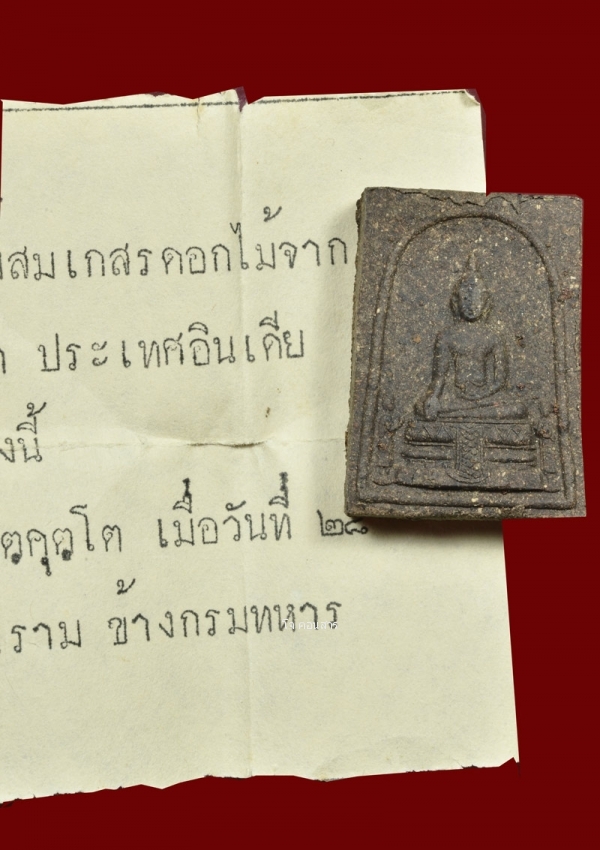 ผสมเกสรดอกไม้จาก
ประเทศอินเดีย
งนี้
ตฺตคุตฺโต เมื่อวันที่ ๒๘
ราม ข้างกรมทหาร